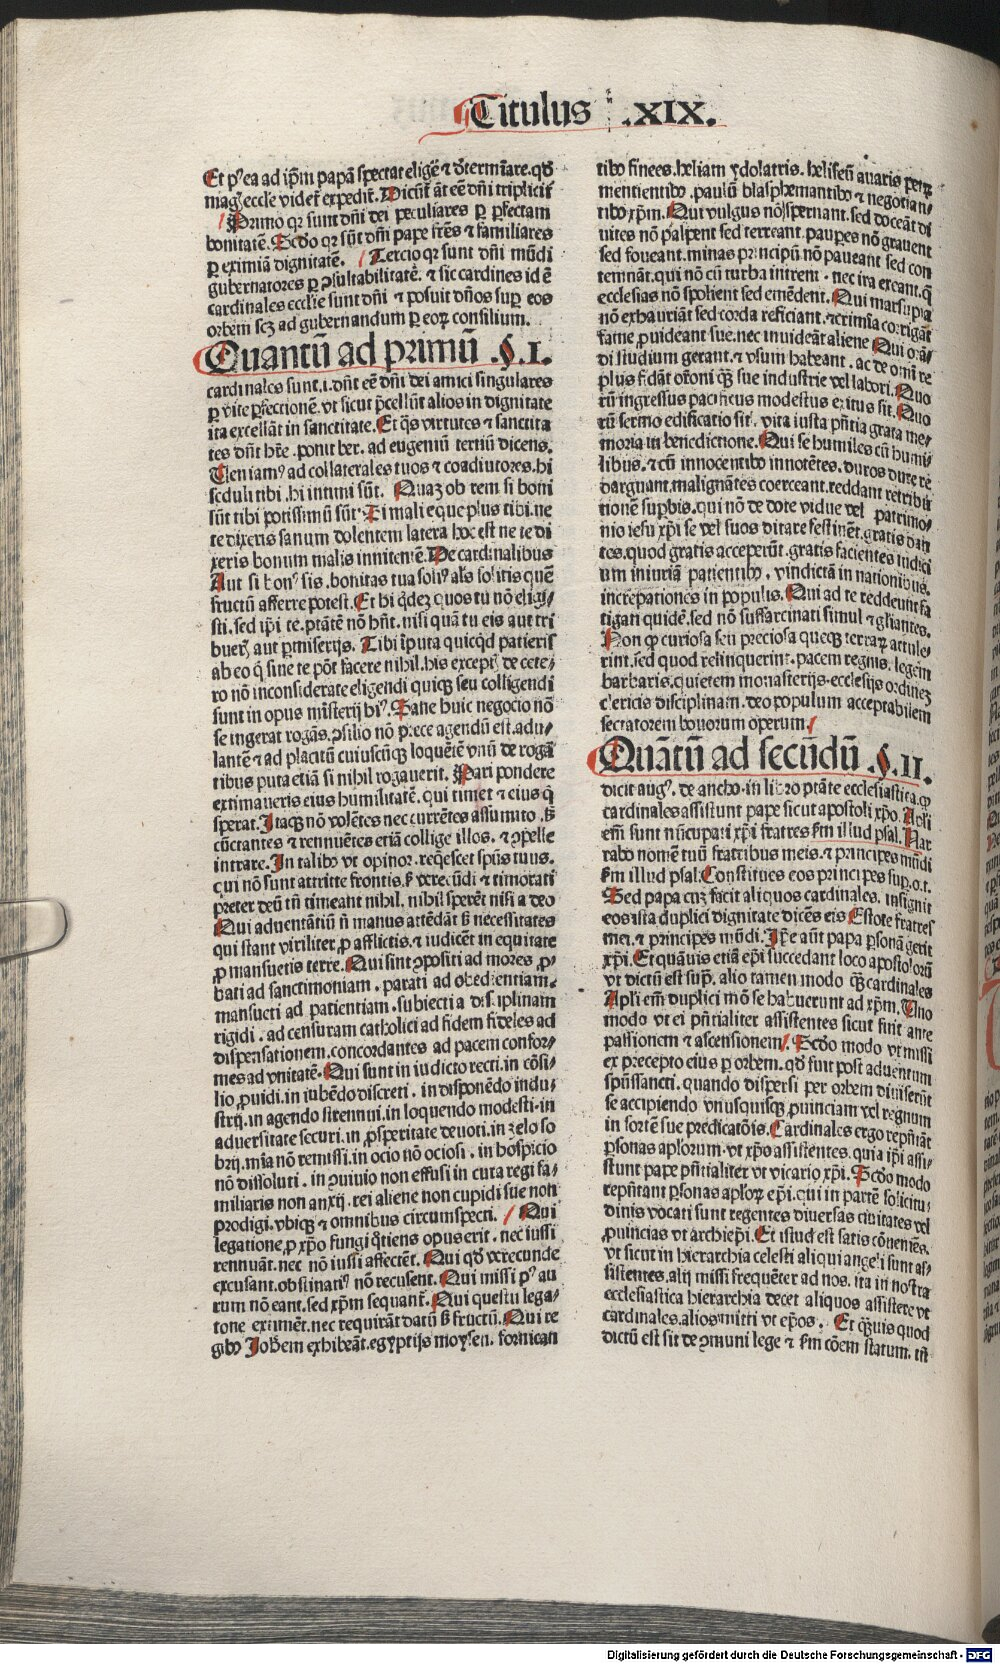 Titulus .XIX.
Et pꝰea ad ip̄m papā spectat eligē ⁊ d̄termīare. qd̓
mag̓ eccl̓e videt̓ expedit̓. Dicūt̓ āt eē dn̄i triplicit̓
Primo qꝛ sunt dn̄i dei peculiares ꝑ ꝑfectam
bonitatē. Scd̓o qꝛ sūt dn̄i pape fr̄es ⁊ familiares
ꝑ eximiā dignitatē. Tercio qꝛ sunt dn̄i mūdi
gubernatores ꝑ ꝯsultabilitatē. ⁊ sic cardines id ē
cardinales eccl̓ie sunt dn̄i ⁊ posuit dn̄os suꝑ eos
orbem scꝫ ad gubernandum ꝑ eoꝝ consilium.
Quantū ad primū .§.I.
cardinales sunt .i. dn̄t eē dn̄i dei amici singulares
ꝑ vite ꝑfectionē. vt sicut p̄cellūt alios in dignitate
ita excellāt in sanctitate. Et q̄s virtutes ⁊ sanctita
tes dn̄t hr̄e. ponit ber. ad eugeniū tertiū dicens.
Veniamꝰ ad collaterales tuos ⁊ coadiutores. hi
seduli tibi. hi intimi sūt. Quaꝫob rem si boni
sūt tibi potissimū sūt. Si mali eque plus tibi. ne
te dixeris sanum dolentem latera hoc est ne te di
xeris bonum malis innitentē. De cardinalibus
Aut si bonꝰ sis. bonitas tua solꝰ al̓s solitis quē
fructū afferre potest. Et hi q̓dez quos tu nō eligi/
sti. sed ip̄i te. ptātē nō hn̄t. nisi quā tu eis aut tri
buer̓ aut ꝑmiseris. Tibi īputa quicq̓d patieris
ab eo q̓ sine te pōt facere nihil. his exceptꝭ de cete/
ro nō inconsiderate eligendi quiqꝫ seu colligendi
sunt in opus mīsterij hiꝰ. Sane huic negocio nō
se ingerat rogās. ꝯsilio nō p̄ece agendū est. adu/
lantē ⁊ ad placitū cuiuscūqꝫ loquētē vnū de rogā
tibus puta etiā si nihil rogauerit. Pari pondere
extimaueris eius humilitatē. qui timet ⁊ eius q̓
sperat. Itaqꝫ nō volētes nec currētes assumito. sꝫ
cūctantes ⁊ rennuētes etiā collige illos. ⁊ ꝯpelle
intrare. In talibꝰ vt opinor. reqͥescet spūs tuus.
qui nō sunt attritte frontis. sꝫ verecūdi ⁊ timorati
preter deū tn̄ timeant nihil. nihil sperēt nisi a deo
Qui aduentātiū n̄ manus attēdāt sꝫ necessitates
qui stant viriliter ꝓ afflictis. ⁊ iudicēt in equitate
ꝓ mansuetis terre. Qui sint ꝯpositi ad mores ꝓ/
bati ad sanctimoniam. parati ad obedientiam.
mansueti ad patientiam. subiecti a disciplinam
rigidi. ad censuram catholici ad fidem fideles ad
dispensationem. concordantes ad pacem confor/
mes ad vnitatē. Qui sunt in iudicto recti. in cōsi/
lio ꝓuidi. in iubēdo discreti. in disponēdo indu/
strij. in agendo strennui. in loquendo modesti. in
aduersitate securi. in ꝓsperitate deuoti. in zelo so
brij. mīa nō remissi. in ocio nō ociosi. in hospicio
nō dissoluti. in ꝯuiuio non effusi in cura regi fa/
miliaris non anxij. rei aliene non cupidi sue non
prodigi. vbiqꝫ ⁊ omnibus circumspecti. Qui
legatione ꝓ xp̄o fungi q̓tiens opus erit. nec iussi
rennuāt. nec nō iussi affectēt. Qui qd̓ verecunde
excusant. obstinatiꝰ nō recusent. Qui missi pꝰ au
rum nō eant. sed xp̄m sequant̓. Qui questu lega/
tone existimēt. nec requirāt datū sꝫ fructū. Qui re
gibꝰ Johēm exhibeāt. egyptijs moysen. fornican
tibꝰ finees. heliam ydolatris. heliseū auaris petrū
mentientibꝰ. paulū blasphemantibꝰ ⁊ negotian/
tibꝰ xp̄m. Qui vulgus nō spernant. sed doceāt di
uites nō palpent sed terreant. pauꝑes nō grauent
sed foueant. minas principū nō paueant sed con
temnāt. qui nō cū turba intrent. nec ira exeant. q̓
ecclesias nō spolient sed emēdent. Qui marsupia
nō exhauriāt sed corda reficiant. ⁊ crimīa corrigāt
fame ꝓuideant sue. nec inuideāt aliene Qui orā/
di studium gerant. ⁊ vsum habeant. ac de omī re
plus fidāt orōni qꝫ sue industrie vel labori. Quo
rū ingressus pacificus modestus exitus sit. Quo
rū sermo edificatio sit. vita iusta pn̄tia grata me/
moria in benedictione. Qui se humiles cū humi/
libus. ⁊ cū innocentibꝰ innotētes. duros dure re
darguant. malignātes coerceant. reddant retribu
tionē suꝑbis. qui nō de dote vidue vel patrimo/
nio iesu xp̄i se vel suos ditare festinēt. gratis dan
tes. quod gratis acceperūt. gratis facientes iudici
um iniuriā patientibꝰ. vindictā in nationibus.
increpationes in populis. Qui ad te reddeūt fa
tigati quidē. sed nō suffarcinati simul ⁊ gl̓iantes.
Non ꝙ curiosa seu preciosa queqꝫ terraꝝ attule/
rint. sed quod relinquerint. pacem regnis. legem
barbaris. quietem monasterijs. ecclesijs ordinez
clericis disciplinam. deo populum acceptabilem
sectatorem bonorum operum.
Quātū ad secūdū .§.II.
dicit augꝰ. de ancho. in libro ptāte ecclesiastica. ꝙ
cardinales assistunt pape sicut apostoli xp̄o. Apl̓i
em̄ sunt nūcupati xp̄i fratres scd̓m illud psal. Nar
rabo nomē tuū fratribus meis. ⁊ principes mūdi
scd̓m illud psal. Constitues eos principes suꝑ. o. t.
Sed papa cuꝫ facit aliquos cardinales. insignit
eos ista duplici dignitate dicēs eis Estote fratres
mei. ⁊ principes mūdi. Ip̄e aūt papa ꝑsonā gerit
xp̄i. Et quāuis etiā ep̄i succedant loco apostolorū
vt dictū est suꝑ. alio tamen modo qꝫ cardinales
Apl̓i em̄ duplici mō se habuerunt ad xp̄m. Vno
modo vt ei pn̄tialiter assistentes sicut fuit ante
passionem ⁊ ascensionem. Scd̓o modo vt missi
ex precepto eius ꝑ orbem. qd̓ fuit post aduentum
spūssancti. quando dispersi per orbem diuiserūt
se accipiendo vnusquisqꝫ ꝓuinciam vel regnum
in sortē sue predicatōis. Cardinales ergo repn̄tāt
ꝑsonas apl̓orum. vt xp̄o assistentes. quia ip̄i assi/
stunt pape pn̄tialiter vt vicario xp̄i. Scd̓o modo
repn̄tant ꝑsonas apl̓oꝝ ep̄i. qui in partē solicitu/
dinis vocati sunt regentes diuersas ciuitates vel
ꝓuincias vt archiep̄i. Et istud est satis cōueniēs.
vt sicut in hierarchia celesti aliqui angeli sunt as/
sistentes. alij missi frequēter ad nos. ita in nostra
ecclesiastica hierarchia decet aliquos assistere vt
cardinales. alios mitti vt ep̄os. Et qꝫuis quod
dictū est sit de ꝯmuni lege ⁊ scd̓m cōem statum. tn̄
Digitalisierung gefördert durch die Deutsche Forschungsgemeinschaft - DFG